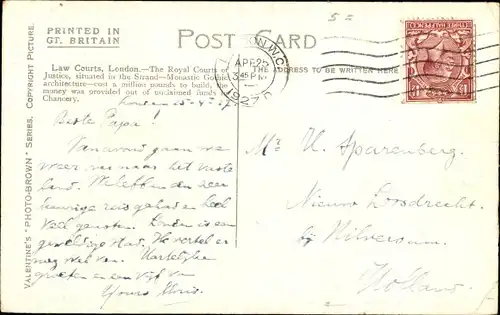 PRINTED IN
GT. BRITAIN
POST CARD
VALENTINE'S "PHOTO-BROWN" SERIES. COPYRIGHT PICTURE.
Law Courts, London.—The Royal Courts of
Justice, situated in the Strand—Monastic Gothic
architecture—cost a million pounds to build, the
money was provided out of unclaimed funds in
Chancery.
THE ADDRESS TO BE WRITTEN HERE
5=
N.W.C
APR 25
3.45 PM
1927
THREE HALFPENCE
London 25-4-27
Beste Papa!
Van avond gaan we
weer naar het vaste
land. We hebben den zeer
reis gehad en heel
veel genoten. Londen is een
geweldige stad. Ik vertel er
nog wel van. Hartelijke
groeten en een van
Yours
Mr U. Sparenberg.
Nieuw Loosdrecht
bij Hilversum
Holland.